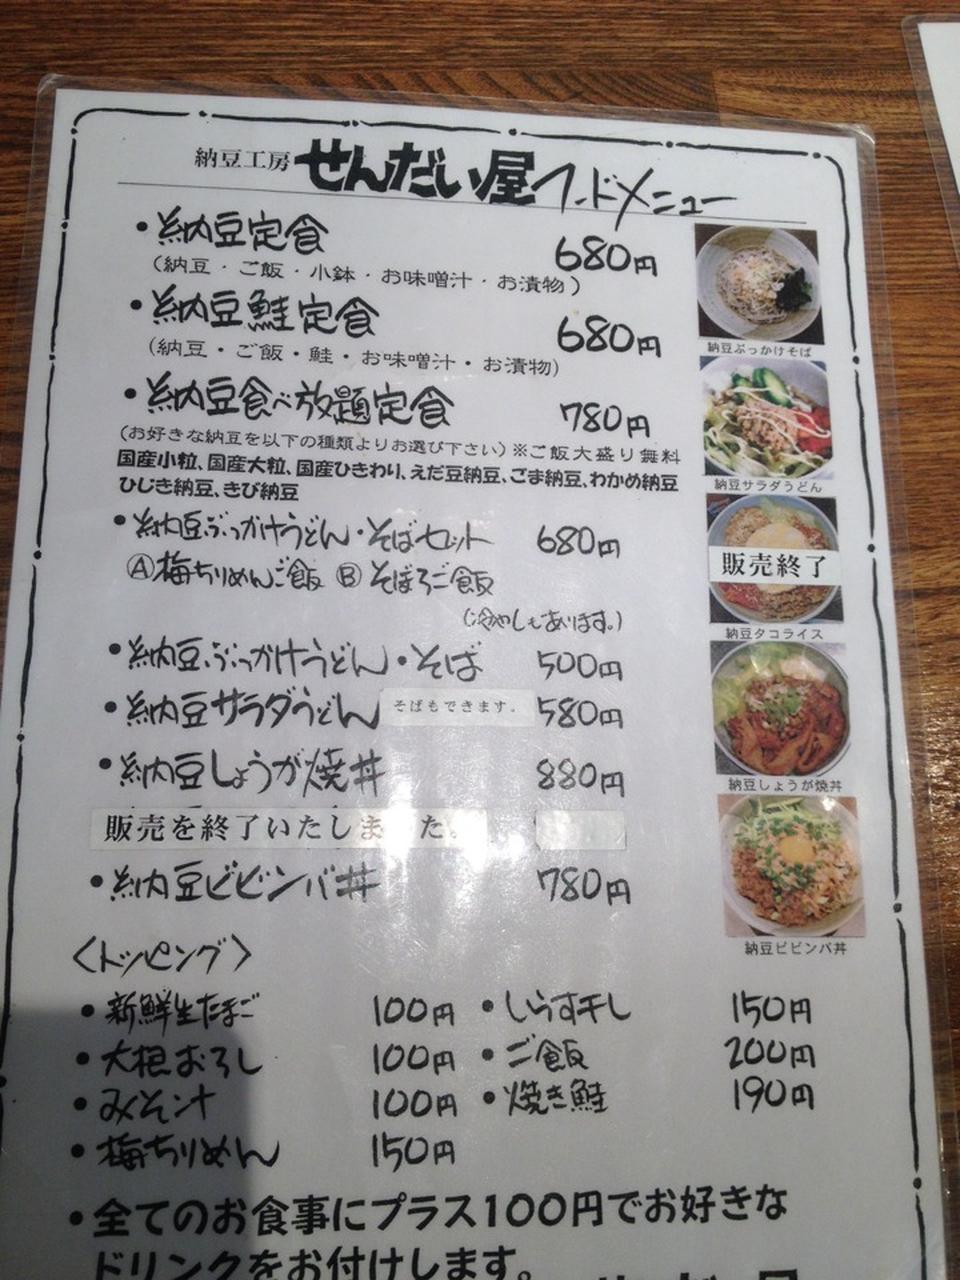 納豆工房 せんだい屋 フードメニュー
・納豆定食 680円
(納豆・ご飯・小鉢・お味噌汁・お漬物)
・納豆鮭定食 680円
(納豆・ご飯・鮭・お味噌汁・お漬物)
・納豆食べ放題定食 780円
(お好きな納豆を以下の種類よりお選び下さい)※ご飯大盛り無料
国産小粒、国産大粒、国産ひきわり、えだ豆納豆、ごま納豆、わかめ納豆
ひじき納豆、きび納豆
・納豆ぶっかけうどん・そばセット 680円
Ⓐ梅ちりめんご飯 Ⓑそぼろご飯
(冷やしもあります。)
・納豆ぶっかけうどん・そば 500円
・納豆サラダうどん そばもできます。 580円
・納豆しょうが焼丼 880円
販売を終了いたしました。
・納豆ビビンバ丼 780円
納豆ぶっかけそば
納豆サラダうどん
販売終了
納豆タコライス
納豆しょうが焼丼
納豆ビビンバ丼
〈トッピング〉
・新鮮生たまご 100円 ・しらす干し 150円
・大根おろし 100円 ・ご飯 200円
・みそ汁 100円 ・焼き鮭 190円
・梅ちりめん 150円
・全てのお食事にプラス100円でお好きな
ドリンクをお付けします。